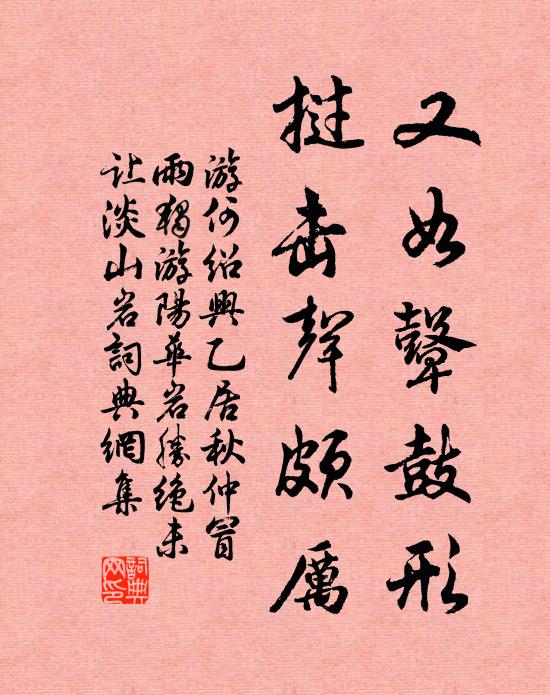 又如鼙鼓形
撾击聲頗厲
游何绍興乙居秋仲冒
雨獨游陽華岩勝绝未
让淡山岩詞典網集
詞典网印